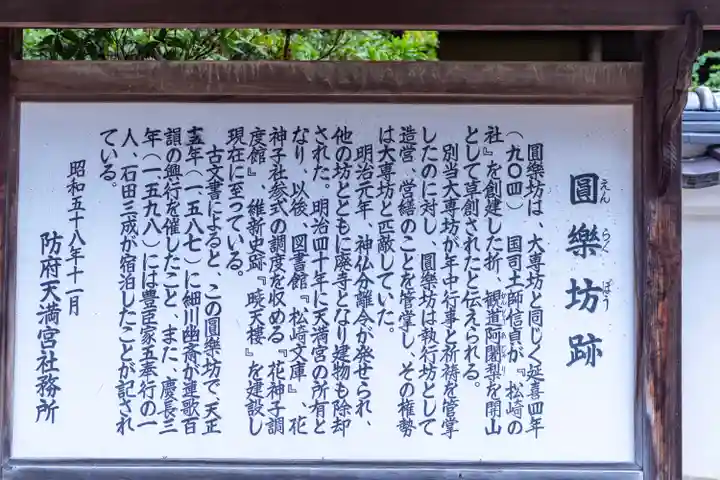 圓樂坊跡
えんらくぼう
圓樂坊は、大専坊と同じく延喜四年
(九〇四)国司土師信貞が『松崎の
社』を創建した折、観道阿闍梨を開山
として草創されたと伝えられる。
別当大専坊が年中行事と祈祷を管掌
したのに対し、圓樂坊は執行坊として
造営、営繕のことを管掌し、その権勢
は大専坊と匹敵していた。
明治元年、神仏分離令が発せられ、
他の坊とともに廃寺となり建物も除却
された。明治四十年に天満宮の所有と
なり、以後、図書館『松崎文庫』、花
神子社参式の調度を収める『花神子調
度館』、維新史跡『暁天樓』を建設し
現在に至っている。
古文書によると、この圓樂坊で、天正
十五年(一五八七)に細川幽斎が連歌百
韻の興行を催したこと、また、慶長三
年(一五九八)には豊臣家五奉行の一
人、石田三成が宿泊したことが記され
ている。
昭和五十八年十一月
防府天満宮社務所